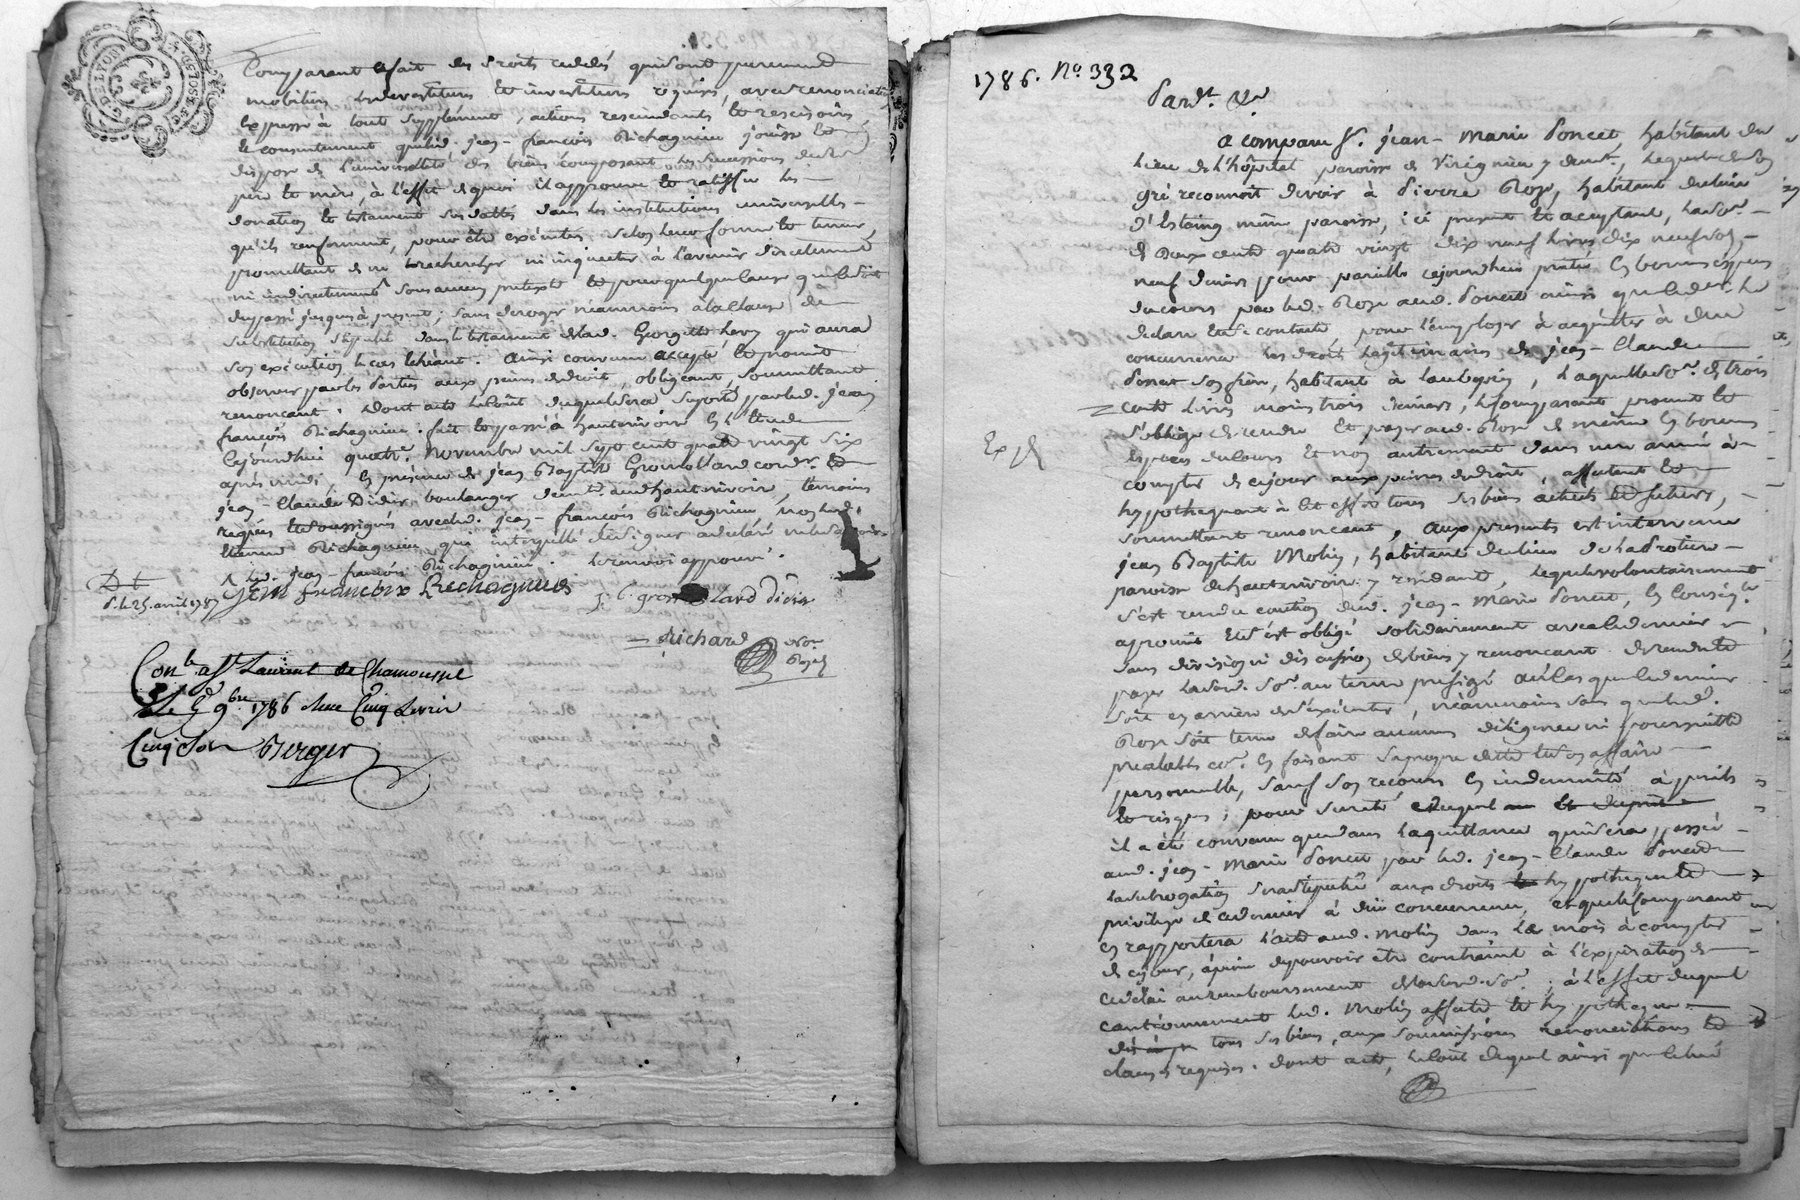 Comparant a fait des droits cedés qui sont purement
mobiliers, devestitures et investitures requises, avec renonciation
expresse à tout supplément, actions rescindants et rescisoires,
et consentement que led. jean-françois Richagnieu jouisse et
dispose de l'universalité des biens composant les successions desd.
père et mère, à l'effet de quoi il approuve et ratiffie les
donation et testament susdattés dans les institutions universelles
qu'ils renferment, pour être exécutés selon leur forme et teneur,
promettant de ne rechercher ni inquieter à l'avenir directement
ni indirectement sous aucun pretexte et pour quelque cause que ce soit
du passé jusques à present, sans deroger néanmoins à la clause de
substitution stipulée dans le testament de lad. Georgette qui aura
son exécution le cas échéant. Ainsi convenu accepté et promis
observer par les parties aux peines de droit, obligeant, soumettant
renonçant. Dont acte le coût duquel sera suporté par led. jean
françois Richagnieu. fait et passé à hauterivoire en l'étude
cejourdhui quatre novembre mil sept cent quatre vingt six
après midi, en présence de jean Baptiste Grosmollard cord.r et
jean-Claude Didier boulanger dem.t aud. hauterivoire, témoins
requis et soussignés avec led. jean-françois Richagnieu, non led.
Etienne Richagnieu qui interpellé de signer a déclaré ne le savoir
led. jean-françois Richagnieu. le renvoi approuvé.
D t
d. le 25. avril 1787
Jean francoix Rechagnieu
J. B. grosmollard didier
Richard No.re
Royal
Con.lé a S.t Laurent de Chamousset
Le 5 9.bre 1786 Reçu Cinq Livres
Cinq sols Berger
1786. N.o 332
Pard.t
A comparu S.r jean-Marie Poncet habitant du
lieu de l'hôpital paroisse de Viricgnieu y demt., lequel de son
gré reconnoit devoir à Pierre Roze, habitant du lieu
d'Estaing même paroisse, ici present et acceptant, la so.e
de deux cents quatre vingt dix neuf livres dix neuf sols,
neuf deniers pour pareille cejourdhui pretée en bonnes especes
du cours par led. Roze aud. Poncet ainsi que led. le
declare et s'en contente pour l'employer à acquitter à due
concurrence les droits légitimaires de jean-Claude
Poncet son frère, habitant à laubepin, laquelle so.e de trois
cents livres moins trois deniers, le comparant promet et
s'oblige de rendre et payer aud. Roze de même en bonnes
especes du cours et non autrement dans une année à
compter de cejour aux peines de droit, affectant et
hypothequant à cet effet tous ses biens actuels et futurs,
soumettant renonçant, aux presents est intervenu
jean Baptiste Molin, habitant du lieu de ladroiture
paroisse de hauterivoire y residant, lequel volontairement
s'est rendu caution dud. jean-Marie Poncet, en conséq.ce
a promis et s'est obligé solidairement avec led. dernier
sans division ni discussion de biens y renonçant de rendre et
payer lad. so.e au terme prefigé au cas que led. dernier
soit en arrière de s'exécuter, néanmoins sans que led.
Roze soit tenu de faire aucunes diligence ni poursuitte
prealable en faisant sa propre dette et son affaire
personnelle, sauf son recours en indemnité à périls
et risques, pour sureté duquel
il a été convenu que dans la quittance qui sera passée
aud. jean-Marie Poncet par led. jean-Claude Poncet
la subrogation sera stipulée aux droits hypotheque et
privilege de ce dernier à due concurrence, et que le comparant
en rapportera l'acte aud. Molin dans six mois à compter
de cejour, à peine de pouvoir être contraint à l'expiration de
ce délai au remboursement de lad. so.e; à l'effet duquel
cautionnement led. Molin affecte et hypotheque
tous ses biens, aux soumissions renonciations et
clauses requises. dont acte, le coût duquel ainsi que le
Exp.é